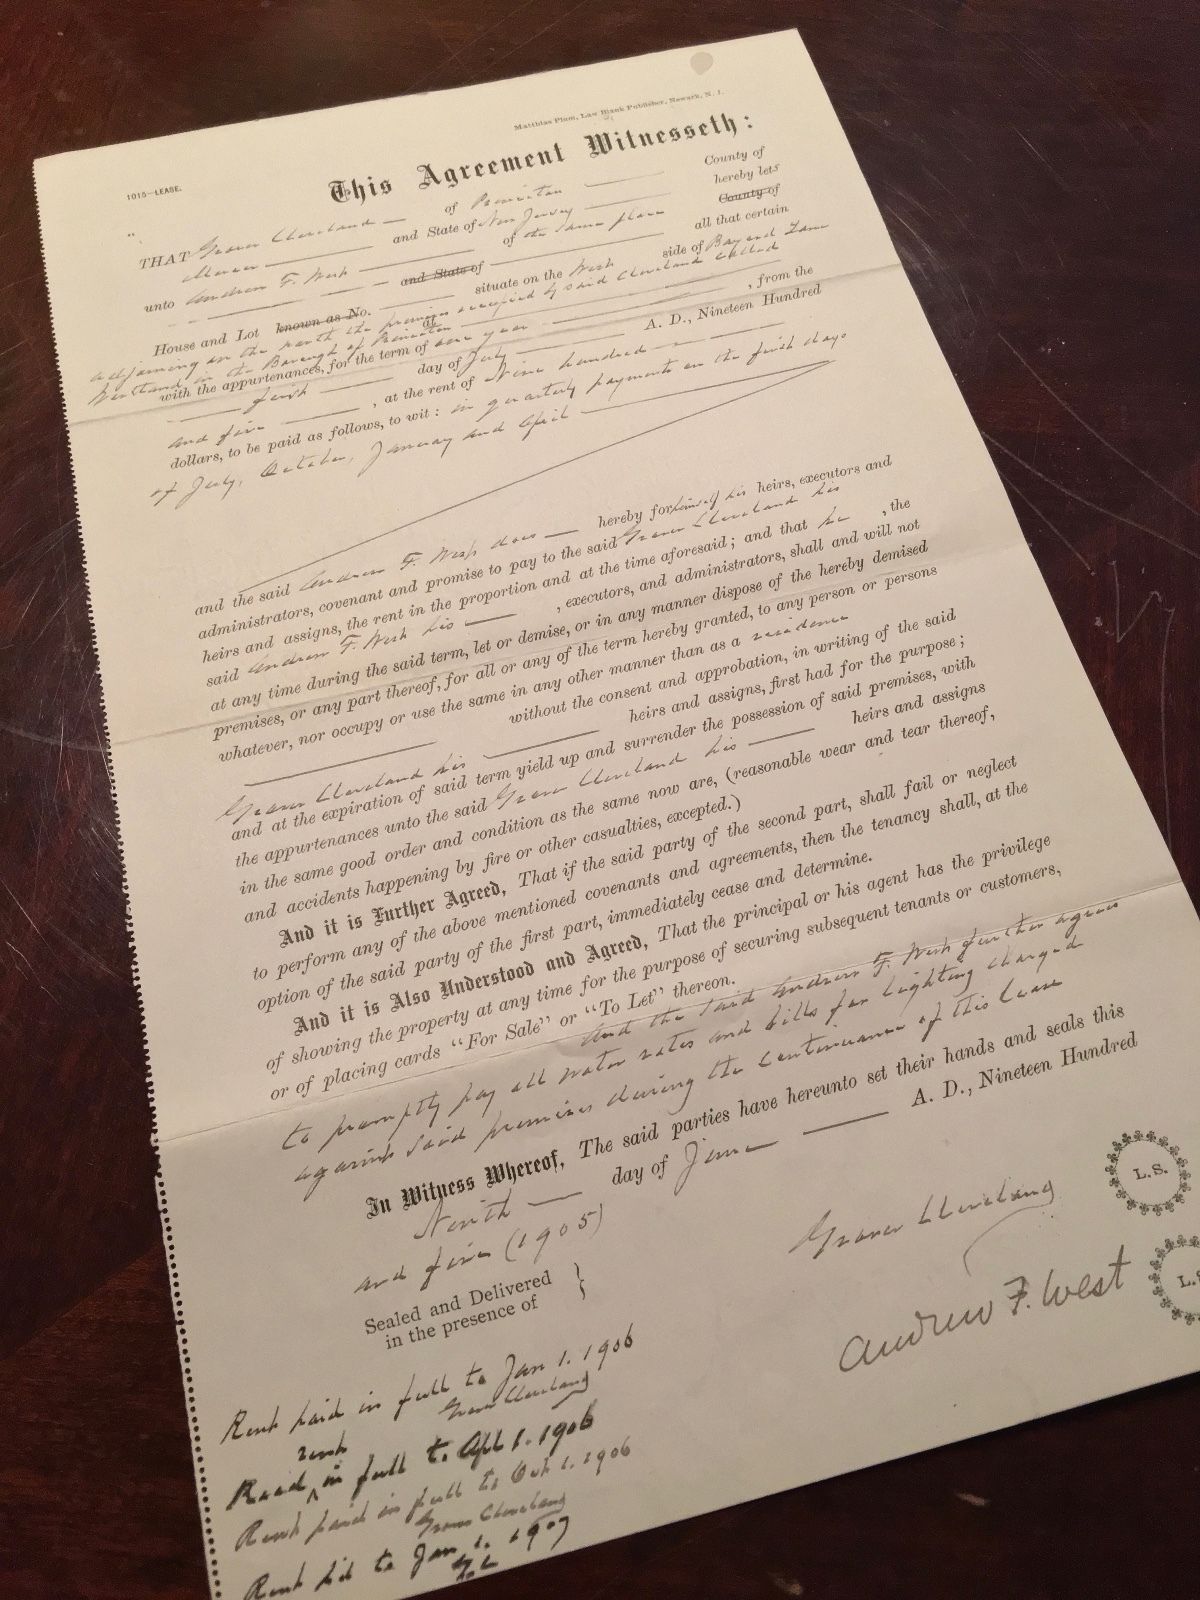 Matthias Plum, Law Blank Publisher, Newark, N. J.
1015—LEASE.
This Agreement Witnesseth:
THAT Grover Cleveland of Princeton County of
Mercer and State of New Jersey hereby lets
unto Andrew F. West of the same place County of
and State of all that certain
House and Lot known as No. situate on the West side of Bayard Lane
adjoining on the north the premises occupied by said Cleveland called
Westland in the Borough of Princeton
with the appurtenances, for the term of one year , from the
first day of July A. D., Nineteen Hundred
and five , at the rent of Nine hundred
dollars, to be paid as follows, to wit: in quarterly payments on the first days
of July, October, January and April
and the said Andrew F. West does hereby for himself his heirs, executors and
administrators, covenant and promise to pay to the said Grover Cleveland his
heirs and assigns, the rent in the proportion and at the time aforesaid; and that he , the
said Andrew F. West his , executors, and administrators, shall and will not
at any time during the said term, let or demise, or in any manner dispose of the hereby demised
premises, or any part thereof, for all or any of the term hereby granted, to any person or persons
whatever, nor occupy or use the same in any other manner than as a residence
without the consent and approbation, in writing of the said
Grover Cleveland his heirs and assigns, first had for the purpose;
and at the expiration of said term yield up and surrender the possession of said premises, with
the appurtenances unto the said Grover Cleveland his heirs and assigns
in the same good order and condition as the same now are, (reasonable wear and tear thereof,
and accidents happening by fire or other casualties, excepted.)
And it is Further Agreed, That if the said party of the second part, shall fail or neglect
to perform any of the above mentioned covenants and agreements, then the tenancy shall, at the
option of the said party of the first part, immediately cease and determine.
And it is Also Understood and Agreed, That the principal or his agent has the privilege
of showing the property at any time for the purpose of securing subsequent tenants or customers,
or of placing cards "For Sale" or "To Let" thereon.
And the said Andrew F. West further agrees
to promptly pay all water rates and bills for lighting charged
against said premises during the continuance of this lease
In Witness Whereof, The said parties have hereunto set their hands and seals this
Ninth day of June A. D., Nineteen Hundred
and five (1905)
Sealed and Delivered
in the presence of
Grover Cleveland L. S.
Andrew F. West L. S.
Rent paid in full to Jan 1. 1906
Grover Cleveland
rent
in full to Apl 1. 1906
Rent paid in full to Oct 1. 1906
Grover Cleveland
Rent pd to Jan 1. 1907
G. C.